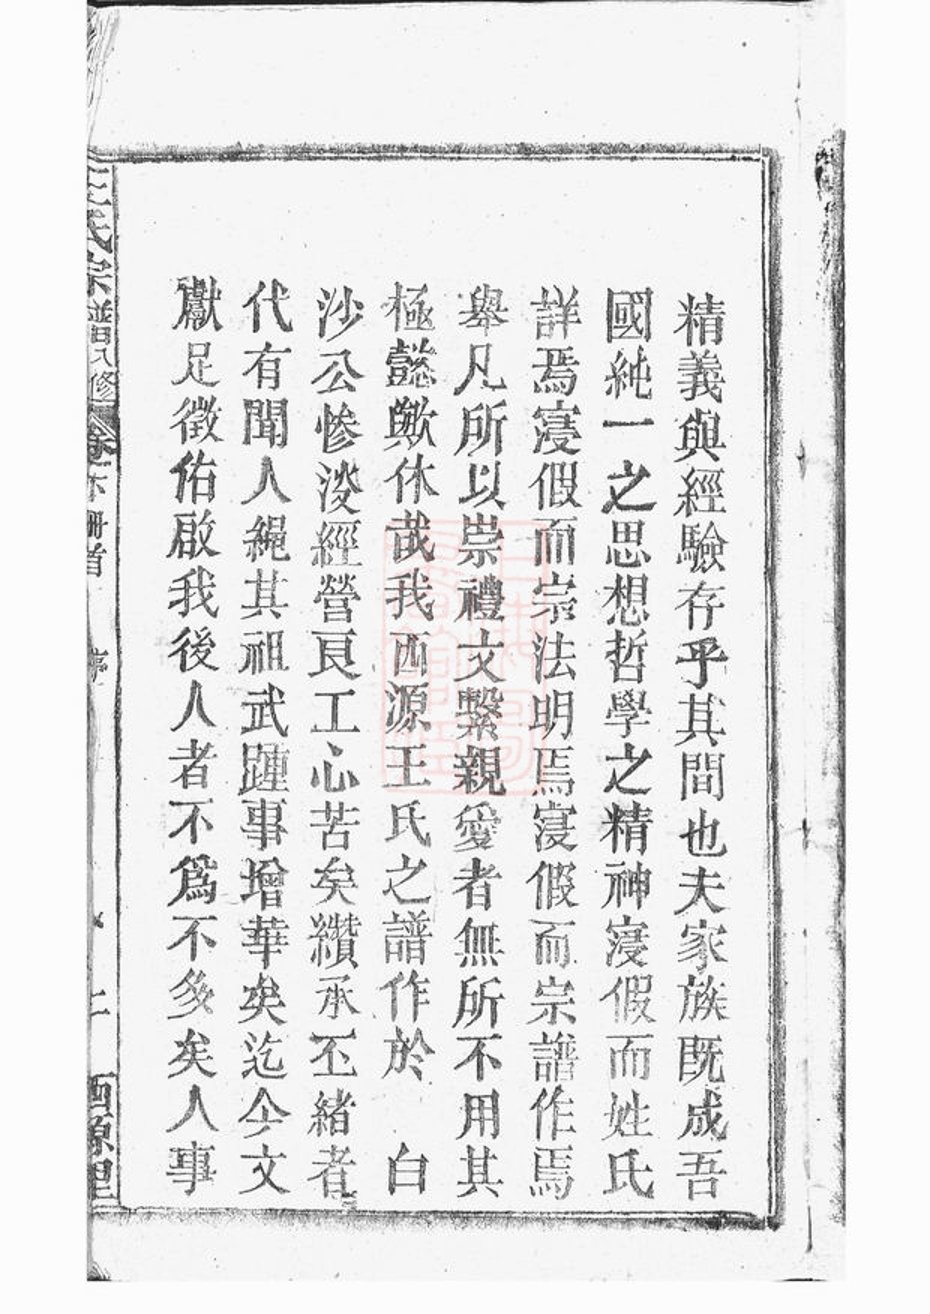 精義與經驗存乎其間也夫家族既成吾
國純一之思想哲學之精神寖假而姓氏
詳焉寖假而宗法明焉寖假而宗譜作焉
舉凡所以崇禮文繫親愛者無所不用其
極懿歟休哉我西源王氏之譜作於 白
沙公慘淡經營良工心苦矣纘承丕緒者
代有聞人繩其祖武踵事增華矣迄今文
獻足徵佑啟我後人者不爲不多矣人事
王氏宗譜 修 卷 下 冊首 序 西源里